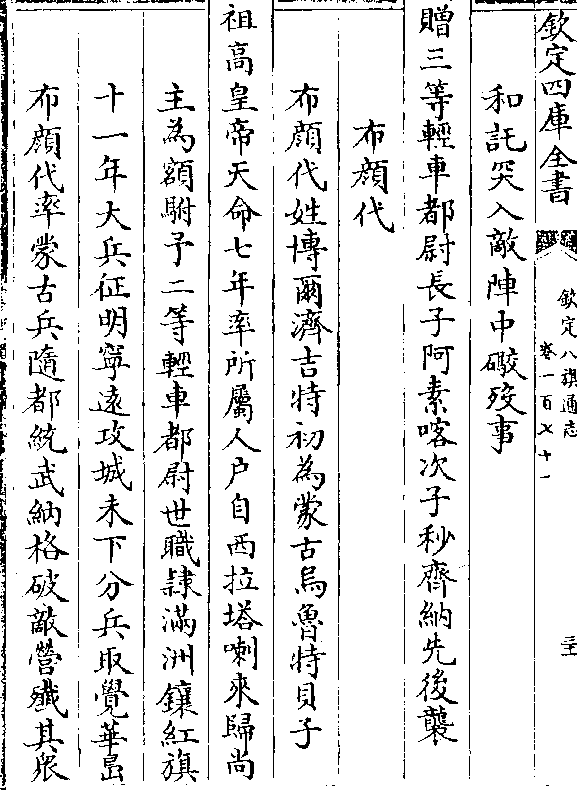 欽定四庫全書
欽定八旗通志
卷一百七十一
三十
和託突入敵陣中礮歿事
贈三等輕車都尉長子阿素喀次子秒齊納先後襲
布顔代
布顔代姓博爾濟吉特初為蒙古烏魯特貝子
祖高皇帝天命七年率所屬人户自西拉塔喇來歸尚
主為額駙予二等輕車都尉世職隷滿洲鑲紅旗
十一年大兵征明寧遠攻城未下分兵取覺華島
布顔代率蒙古兵隨都統武納格破敵營殲其衆